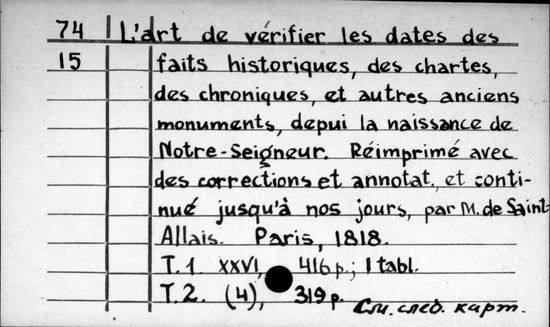 74 L'art de vérifier les dates des
15 faits historiques, des chartes,
des chroniques, et autres anciens
monuments, depui la naissance de
Notre-Seigneur. Réimprimé avec
des corrections et annotat., et conti-
nué jusqu'à nos jours, par M. de Saint-
Allais. Paris, 1818.
T.1. XXVI, 416 p.; 1 tabl.
T.2. (4), 319 p.
См. след. карт.